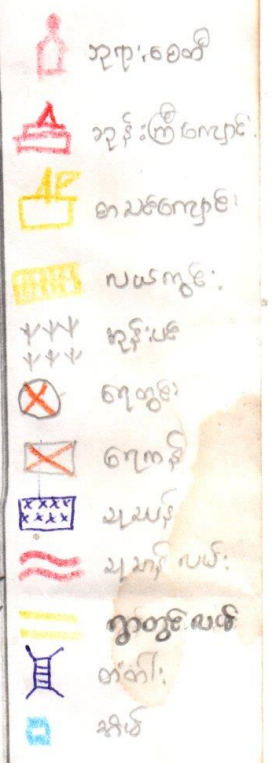 ဘုရား၊စေတီ
ဘုန်းကြီးကျောင်း
စာသင်ကျောင်း
လယ်ကွင်း
အုန်းပင်
ရေတွင်း
ရေကန်
သုသာန်
သုသာန် လမ်း
ရွာတွင်းလမ်း
တံတား
အိမ်